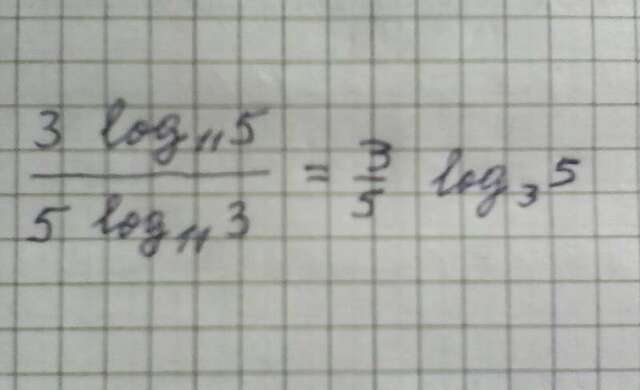 3 log₁₁5 / 5 log₁₁3 = 3/5 log₃5